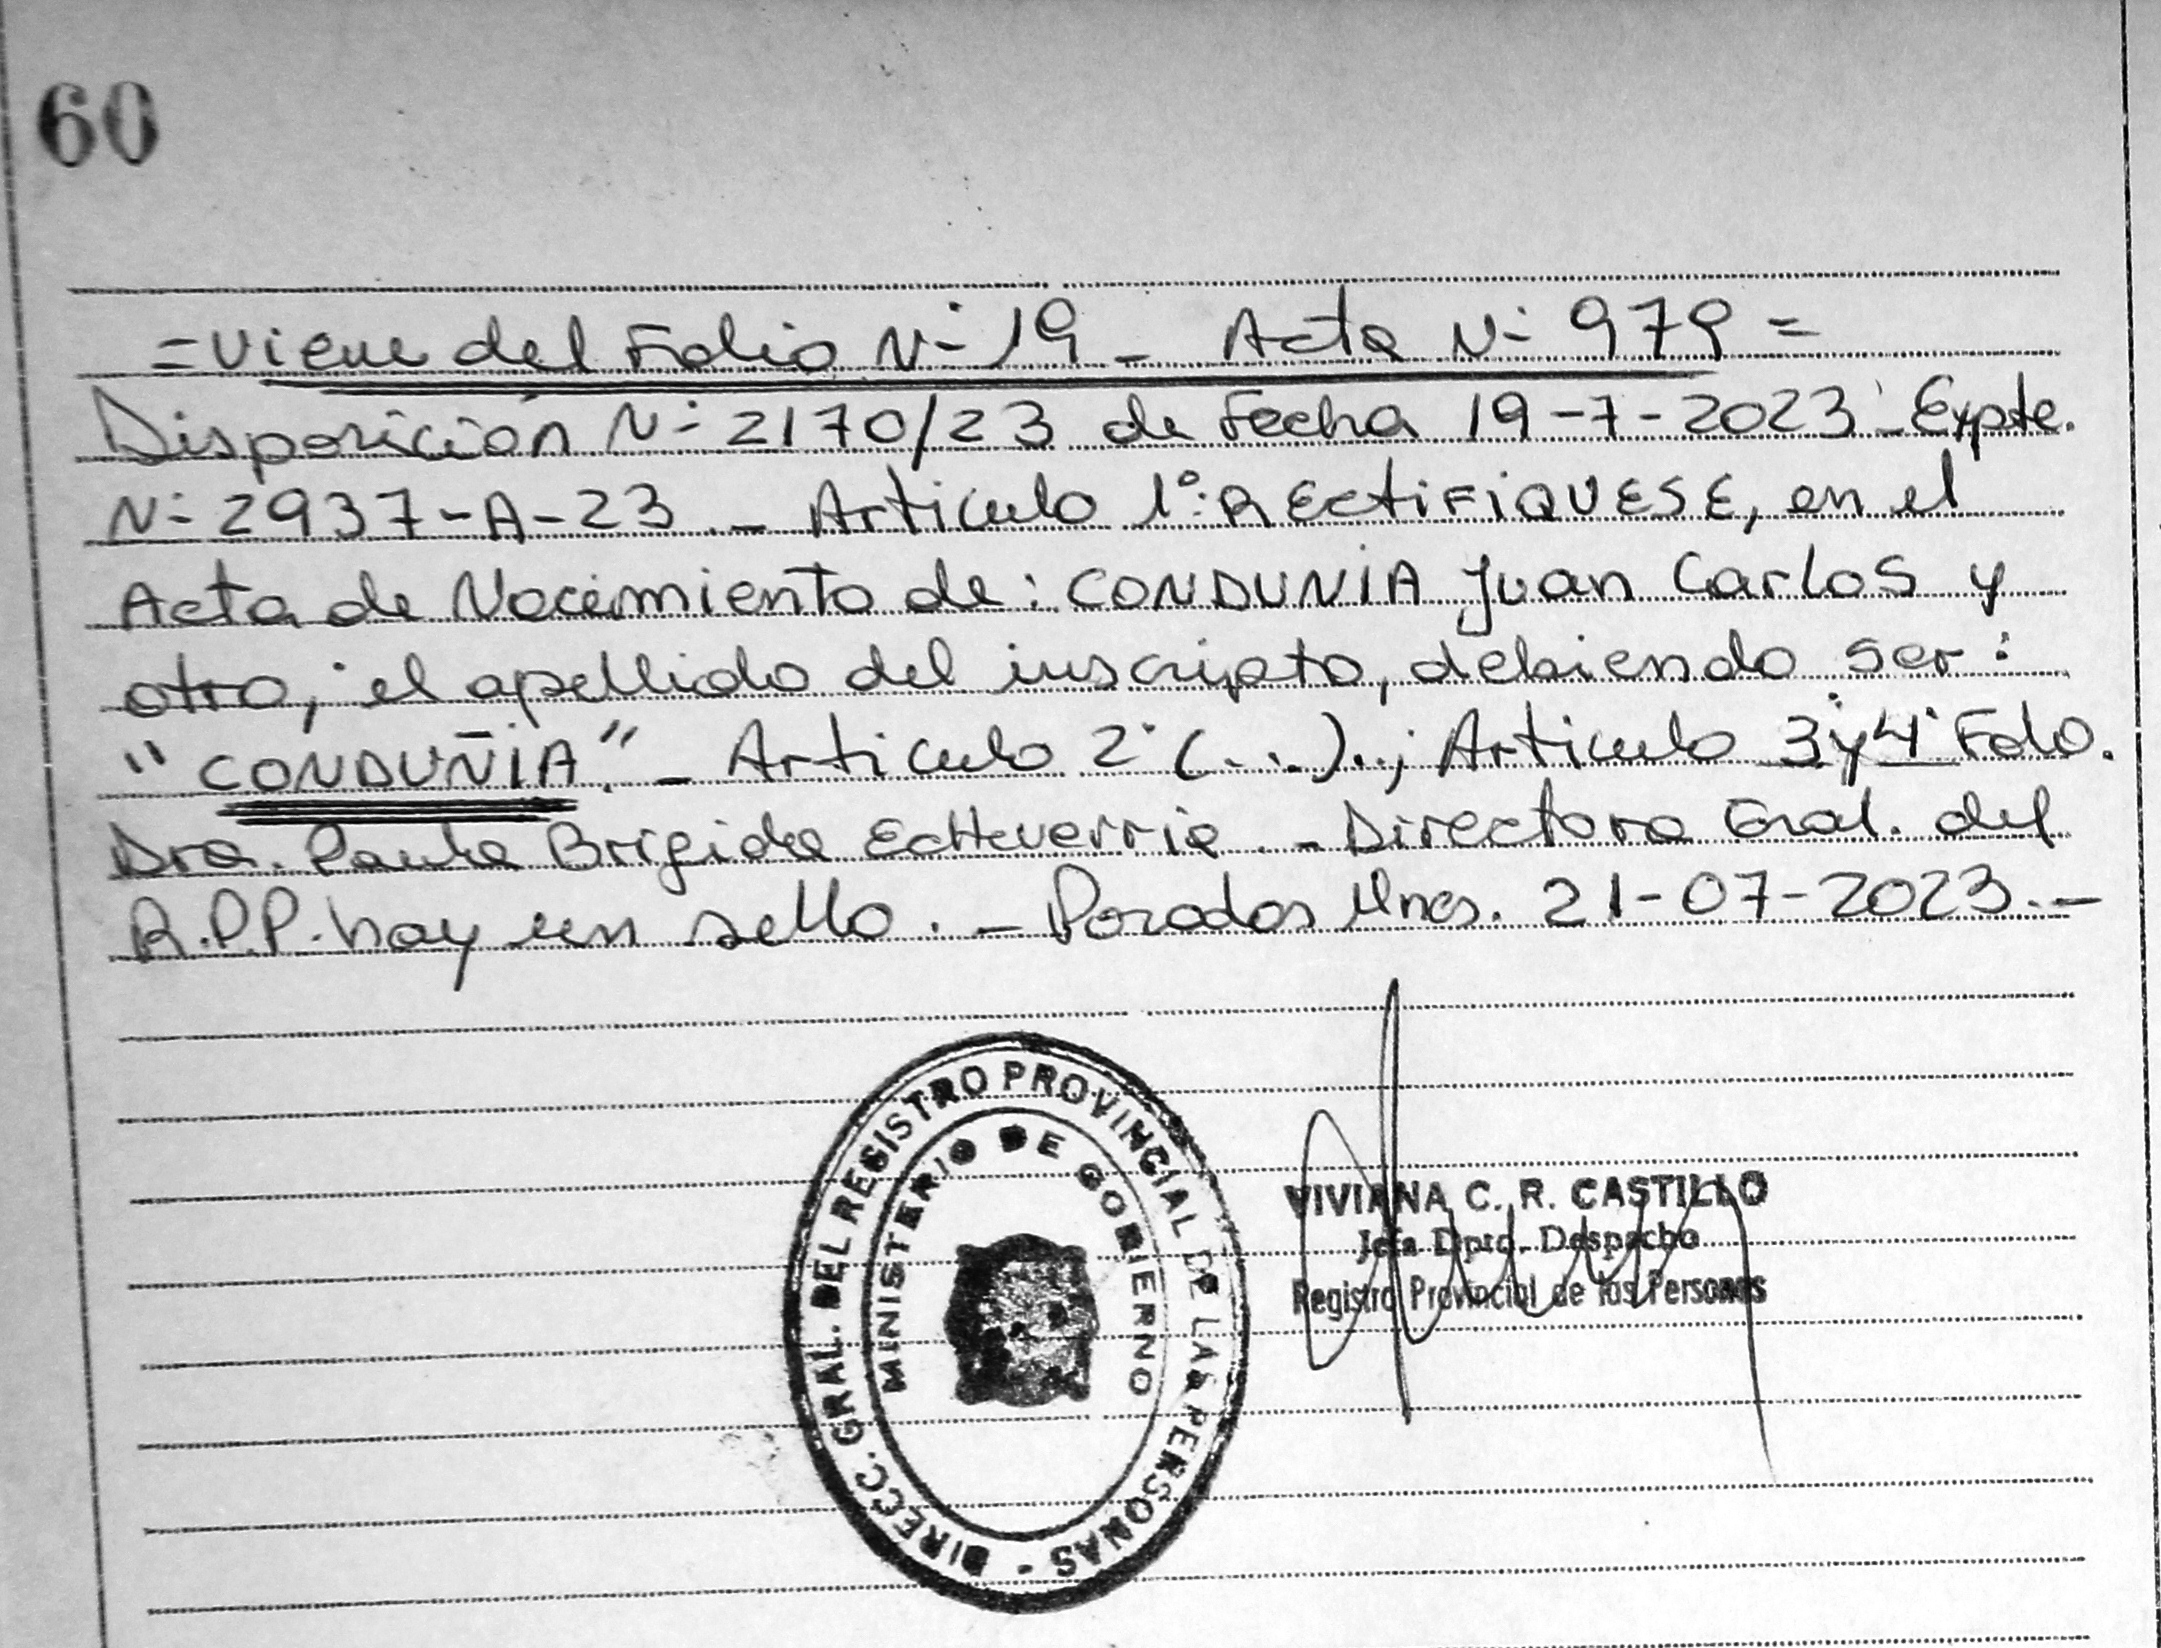 60
= Viene del Folio N- 19 - Acta N- 979 =
Disposición N- 2170/23 de Fecha 19-7-2023 - Expte.
N- 2937-A-23 .- Articulo 1°: RECTIFIQUESE, en el
Acta de Nacimiento de: CONDUNIA Juan Carlos y
otro, el apellido del inscripto, debiendo ser:
"CONDUÑIA". - Articulo 2° (...)..; Articulo 3° y 4° Fdo.
Dra. Paula Brigida Echeverria .- Directora Gral. del
R.P.P. hay un sello. - Posadas Mnes. 21-07-2023.-
DIRECC. GRAL. DEL REGISTRO PROVINCIAL DE LAS PERSONAS -
MINISTERIO DE GOBIERNO
VIVIANA C. R. CASTILLO
Jefa Dpto. Despacho
Registro Provincial de las Personas